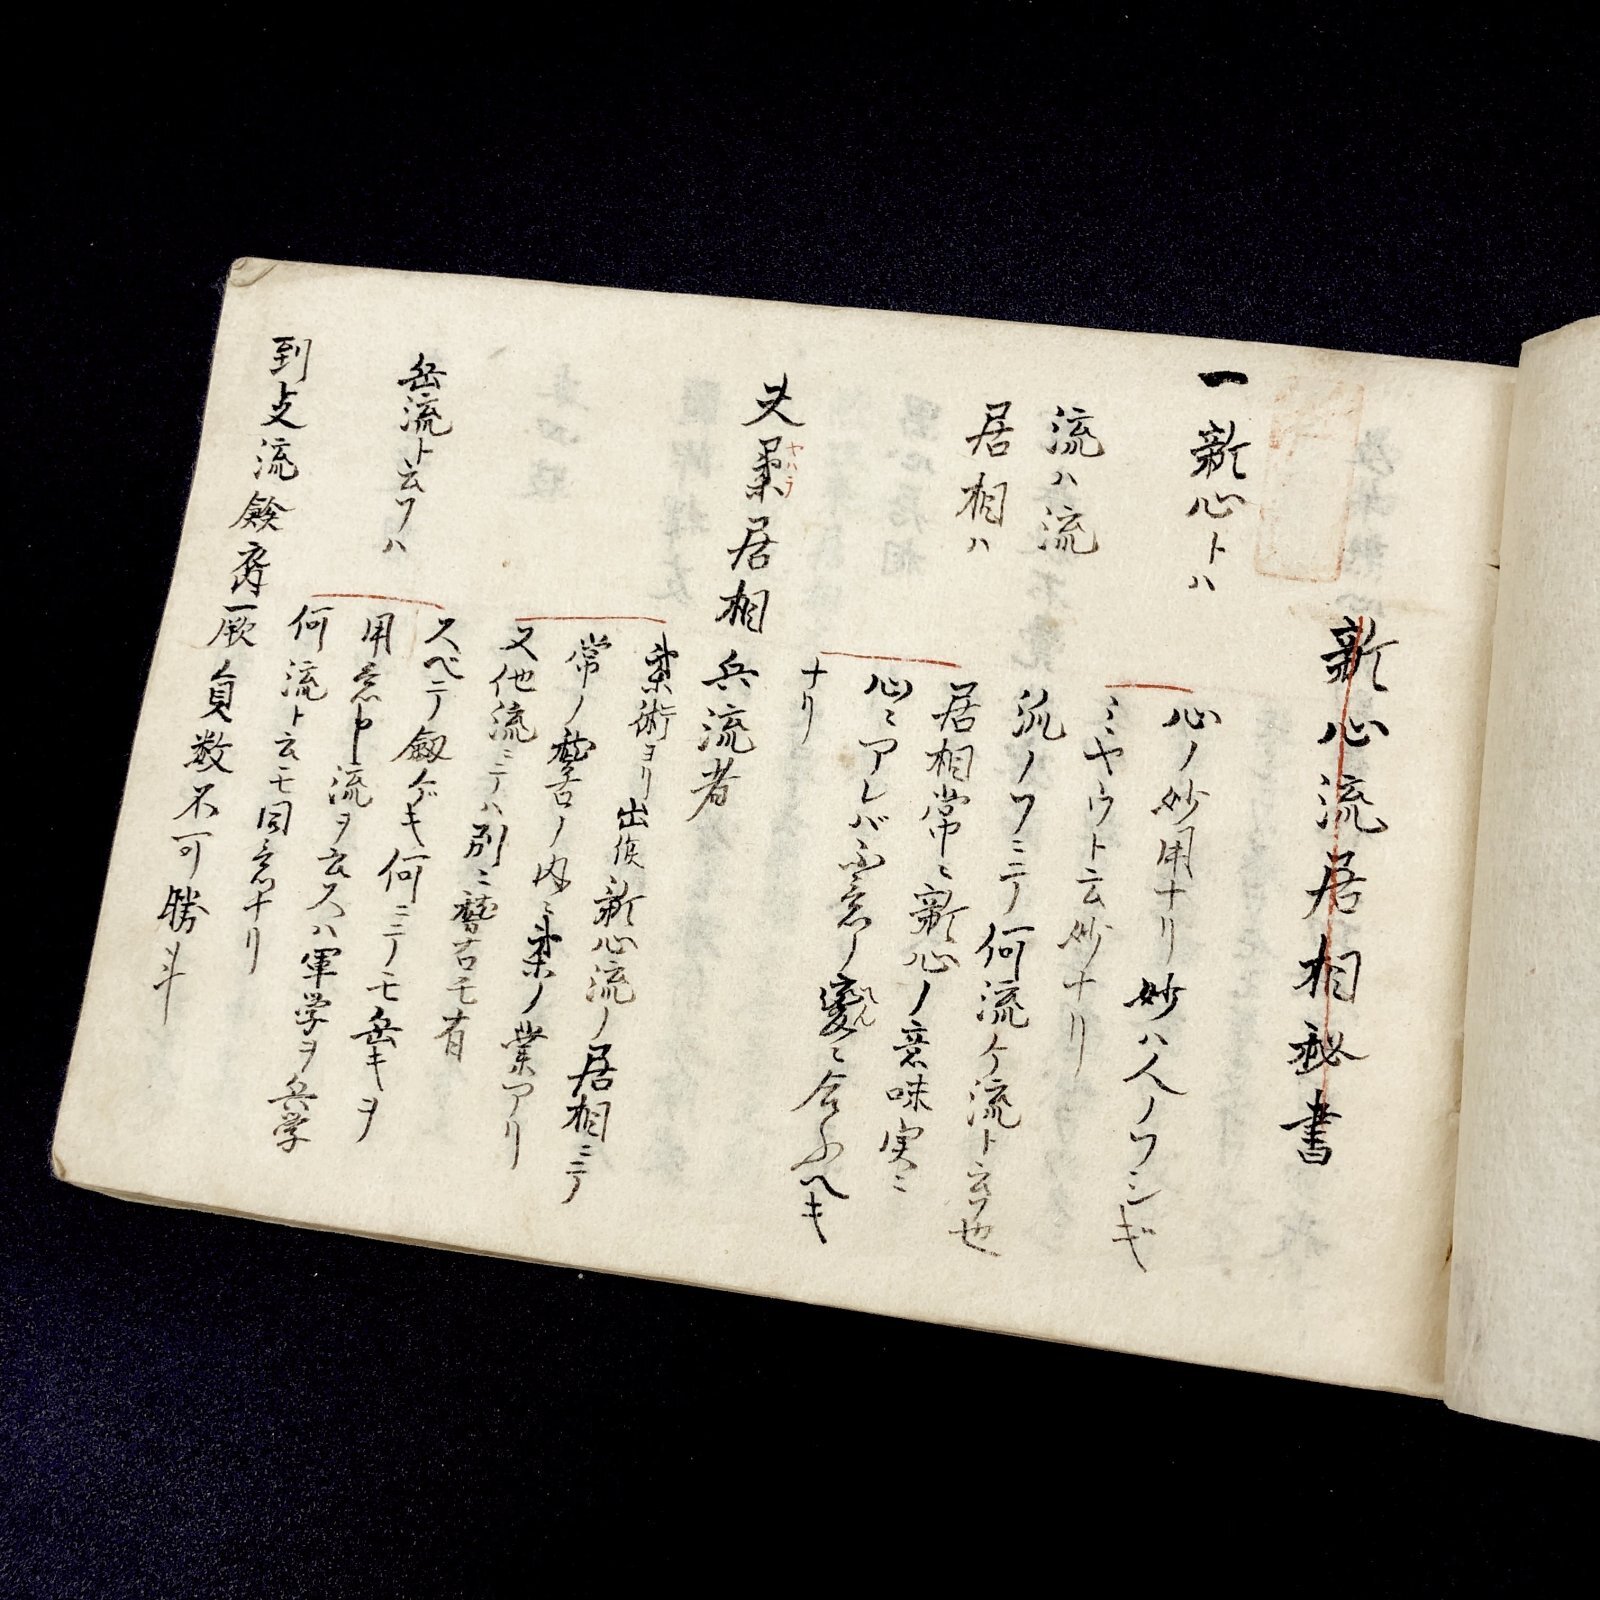 新心流居相秘書
一新心トハ
心ノ妙用ナリ妙ハ人ノフシギ
ミヤウト云妙ナリ
流ハ流
流ノフニテ何流ケ流ト云フ也
居相ハ
居相常ニ新心ノ意味実ニ
心ニアレバ不意ノ変ニ合ふヘキ
ナリ
夫柔居相兵流者
ヤハラ
へん
柔術ヨリ出候新心流ノ居相ニテ
常ノ稽古ノ内ニ柔ノ業アリ
又他流ニテハ別ニ稽古モ有
兵流ト云フハ
スベテ劔ゲキ何ニテモ兵キヲ
用意申流ヲ云又ハ軍学ヲ兵学
何流ト云モ同意ナリ
到支流
一厥員数不可勝斗